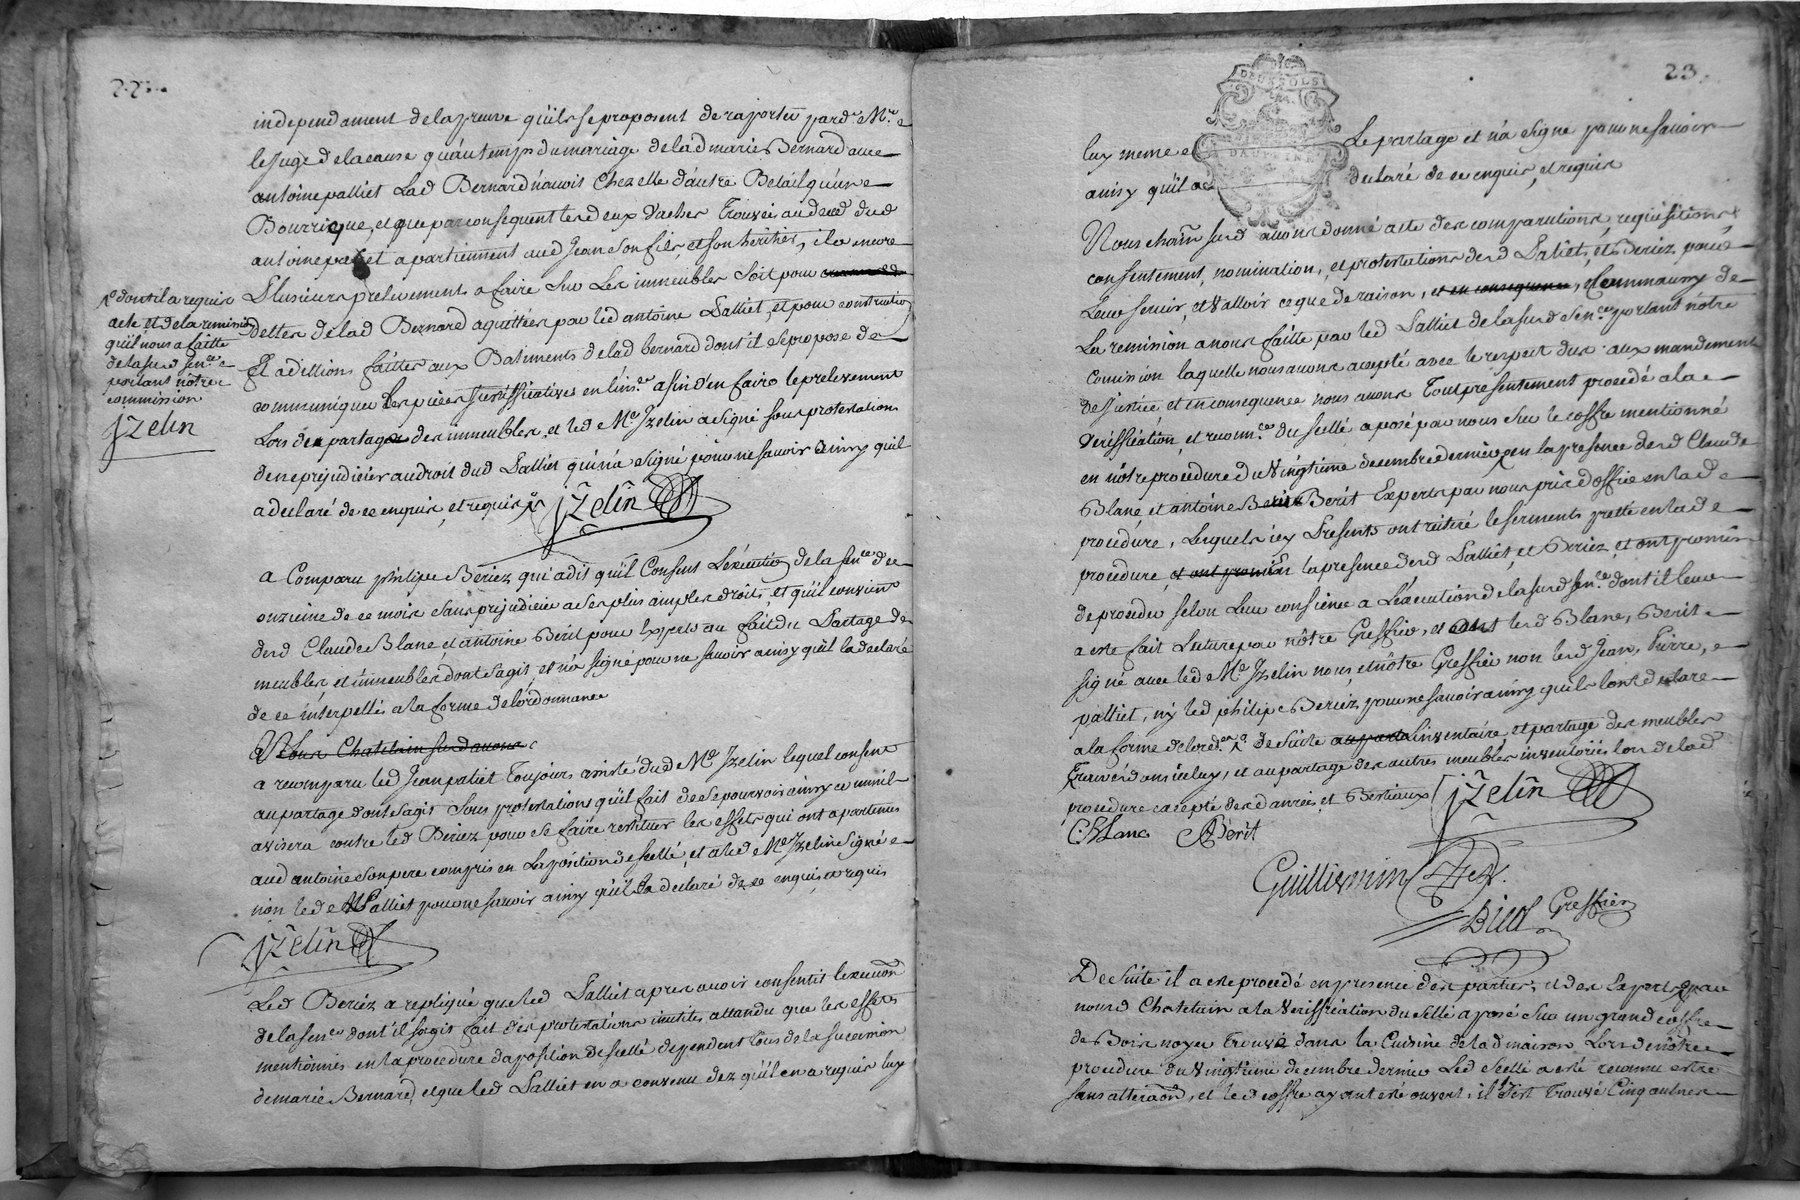 22
independament de la preuve qu'ils se proposent de raporter pard. Mr.
le juge de la cause qu'au temps du mariage de lad marie Bernard avec
antoine palliet Lad Bernard n'avoit Chez elle d'autre Betail qu'une
Bourrique, et que par consequent les deux vaches Trouvée au deced dud
antoine palliet apartiennent aud Jean son fils, et son heritier, il a encore
Plusieurs prelevements a faire sur Les immeubles soit pour
dettes de lad Bernard aquittées par led antoine Palliet, et pour constructions
Et adittions faittes aux Batiments de lad bernard dont il se propose de
communiquer Les pieces justifficatives en l'ins.ce afin d'en faire le prelevement
Lors du partage des immeubles, et led Me. Jzelin a signé sous protestations
de ne prejudicier au droit dud Palliet qui n'a signé pour ne savoir ainsy qu'il
a declaré de ce enquis, et requis
jzelin
dont il a requis
acte et de la remission
qu'il nous a faitte
de la surd sen.ce
portant nôtre
commission
jzelin
a Comparu philipe Beriez qui a dit qu'il Consent L'execution de la sen.ce de
onzieme de ce mois sans prejudicier a ses plus amples droits, et qu'il convient
desd Claude Blanc et antoine Berit pour Experts au fait du Partage de
meubles, et immeubles dont s'agis, et n'a signé pour ne savoir ainsy qu'il la declaré
de ce interpellé a la forme de l'ordonnance
Nous Chatelain surd avons
a recomparu led Jean paliet Toujours assisté dud Me Jzelin lequel consent
au partage dont s'agis sous protestations qu'il fait de se pourvoir ainsy ce mieil
avisera contre led Beriez pour se faire restituer les effets qui ont apartenus
aud antoine son pere compris en L'aposition de scellé, et a led Me Jzelin signé
non led Palliet pour ne savoir ainsy qu'il la declaré de ce enquis, et requis
jzelin
Led Beriez a repliqué que led Palliet apres avoir consentis l'execution
de la sen.ce dont il s'agis fait des protestations inutiles attandu que les effets
mentionnés en la procedure d'aposition de scellé dependent tous de la succession
de marie Bernard, et que led Palliet en a convenu dez qu'il en a requis luy
23
DEUX SOLS
DAUPHINÉ
luy meme Le partage et n'a signé pour ne savoir
ainsy qu'il a declaré de ce enquis, et requis
Nous chat.n surd avons donné acte des comparutions, requisitions,
consentement, nomination, et protestations desd Paliet, et Beriez, pour
Leur servir, et valloir ce que de raison, et en consequence, et Ce
La remission a nous faitte par led Palliet de la surd sen.ce portant nôtre
comission laquelle nous avons accepté avec le respect dus aux mandements
de justice, et en consequence nous avons Tout presentement procedé a la
veriffication, et reconn.ce du scellé aposé par nous sur le coffre mentionné
en nôtre procedure du vingtieme decembre dernier, en la presence desd Claude
Blanc et antoine Berit Experts par nous pris d'office en lad
procedure, Lesquels icy Presents ont reitéré le serments pretté en lad
procedure et ont promis la presence desd Palliet, et Beriez, et ont promis
de proceder selon Leur consience a L'execution de la surd sen.ce dont il leur
a été fait Lecture par nôtre Greffier, et ont lesd Blanc, Berit
signé avec led Me Jzelin nous, et nôtre Greffier non lesd Jean, Pierre,
palliet, ny led philipe Beriez pour ne savoir ainsy qu'ils l'ont declaré
a la forme de l'ord.ce de suite inventaire, et partage des meubles
Trouvé dans icelluy, et au partage des autres meubles inventoriés lors de lad
procedure excepté des danrées, et Bestiaux
jzelin
C. Blanc
A Berit
Guillermin
Greffier
De suite il a été procedé en presence des parties, et des Experts par
nous d Chatelain a la veriffication du scellé aposé sur un grand coffre
de Bois noyer Trouvé dans la Cuisine de lad maison Lors de nôtre
procedure du vingtieme decembre dernier Led scellé a été reconnu estre
sans alteraôn, et led coffre ayant été ouvert, il s'est Trouvé Cinq aulnes